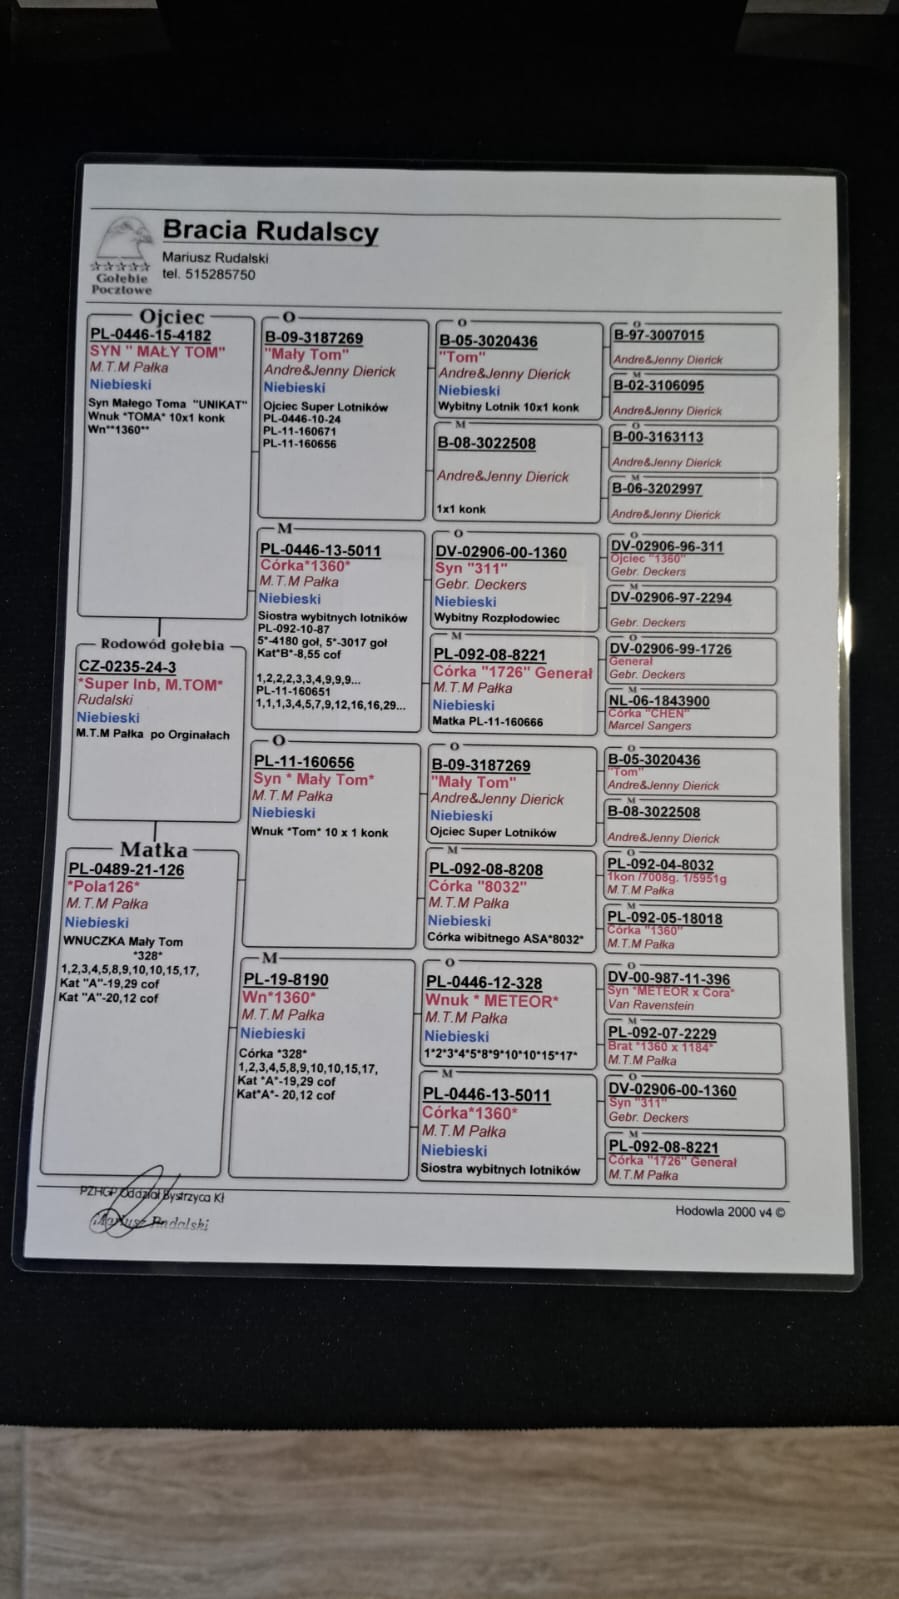 Bracia Rudalscy
Mariusz Rudalski
tel. 515285750
Gołębie
Pocztowe
Ojciec
PL-0446-15-4182
SYN " MAŁY TOM"
M.T.M Pałka
Niebieski
Syn Małego Toma "UNIKAT"
Wnuk *TOMA* 10x1 konk
Wn**1360**
Rodowód gołębia
CZ-0235-24-3
*Super Inb, M.TOM*
Rudalski
Niebieski
M.T.M Pałka po Orginałach
Matka
PL-0489-21-126
*Pola126*
M.T.M Pałka
Niebieski
WNUCZKA Mały Tom
*328*
1,2,3,4,5,8,9,10,10,15,17,
Kat "A"-19,29 cof
Kat "A"-20,12 cof
O
B-09-3187269
"Mały Tom"
Andre&Jenny Dierick
Niebieski
Ojciec Super Lotników
PL-0446-10-24
PL-11-160671
PL-11-160656
M
PL-0446-13-5011
Córka*1360*
M.T.M Pałka
Niebieski
Siostra wybitnych lotników
PL-092-10-87
5*-4180 goł, 5*-3017 goł
Kat*B*-8,55 cof
1,2,2,2,3,3,4,9,9,9...
PL-11-160651
1,1,1,3,4,5,7,9,12,16,16,29...
O
PL-11-160656
Syn * Mały Tom*
M.T.M Pałka
Niebieski
Wnuk *Tom* 10 x 1 konk
M
PL-19-8190
Wn*1360*
M.T.M Pałka
Niebieski
Córka *328*
1,2,3,4,5,8,9,10,10,15,17,
Kat *A*-19,29 cof
Kat*A*- 20,12 cof
O
B-05-3020436
"Tom"
Andre&Jenny Dierick
Niebieski
Wybitny Lotnik 10x1 konk
M
B-08-3022508
Andre&Jenny Dierick
1x1 konk
O
DV-02906-00-1360
Syn "311"
Gebr. Deckers
Niebieski
Wybitny Rozpłodowiec
M
PL-092-08-8221
Córka "1726" Generał
M.T.M Pałka
Niebieski
Matka PL-11-160666
O
B-09-3187269
"Mały Tom"
Andre&Jenny Dierick
Niebieski
Ojciec Super Lotników
M
PL-092-08-8208
Córka "8032"
M.T.M Pałka
Niebieski
Córka wibitnego ASA*8032*
O
PL-0446-12-328
Wnuk * METEOR*
M.T.M Pałka
Niebieski
1*2*3*4*5*8*9*10*10*15*17*
M
PL-0446-13-5011
Córka*1360*
M.T.M Pałka
Niebieski
Siostra wybitnych lotników
O
B-97-3007015
Andre&Jenny Dierick
M
B-02-3106095
Andre&Jenny Dierick
O
B-00-3163113
Andre&Jenny Dierick
M
B-06-3202997
Andre&Jenny Dierick
O
DV-02906-96-311
Ojciec "1360"
Gebr. Deckers
M
DV-02906-97-2294
Gebr. Deckers
O
DV-02906-99-1726
Generał
Gebr. Deckers
M
NL-06-1843900
Córka "CHEN"
Marcel Sangers
O
B-05-3020436
"Tom"
Andre&Jenny Dierick
M
B-08-3022508
Andre&Jenny Dierick
O
PL-092-04-8032
1kon /7008g. 1/5951g
M.T.M Pałka
M
PL-092-05-18018
Córka "1360"
M.T.M Pałka
O
DV-00-987-11-396
Syn *METEOR x Cora*
Van Ravenstein
M
PL-092-07-2229
Brat *1360 x 1184*
M.T.M Pałka
O
DV-02906-00-1360
Syn "311"
Gebr. Deckers
M
PL-092-08-8221
Córka "1726" Generał
M.T.M Pałka
PZHGP Oddział Bystrzyca Kł
Mariusz Rudalski
Hodowla 2000 v4 ©